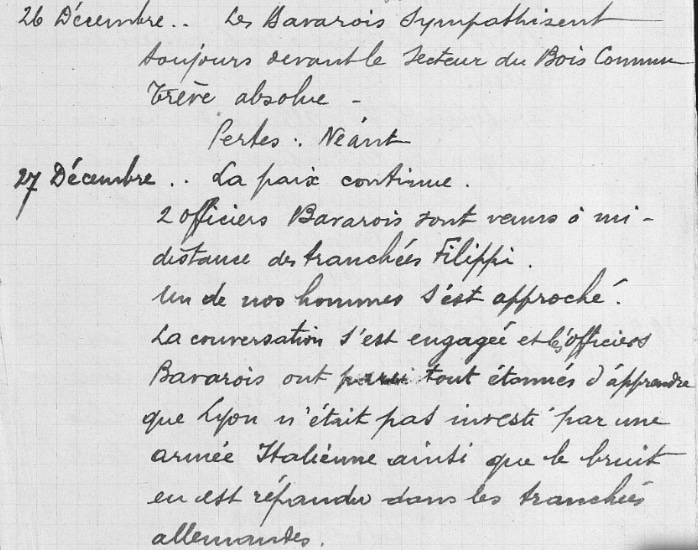 26 Décembre.. Les Bavarois sympathisent
toujours devant le secteur du Bois Commun
Trève absolue -
Pertes : Néant
27 Décembre.. La paix continue.
2 officiers Bavarois sont venus à mi-
distance des tranchées Filippi.
Un de nos hommes s'est approché.
La conversation s'est engagée et les officiers
Bavarois ont paru tout étonnés d'apprendre
que Lyon n'était pas investi par une
armée Italienne ainsi que le bruit
en est répandu dans les tranchées
allemandes.